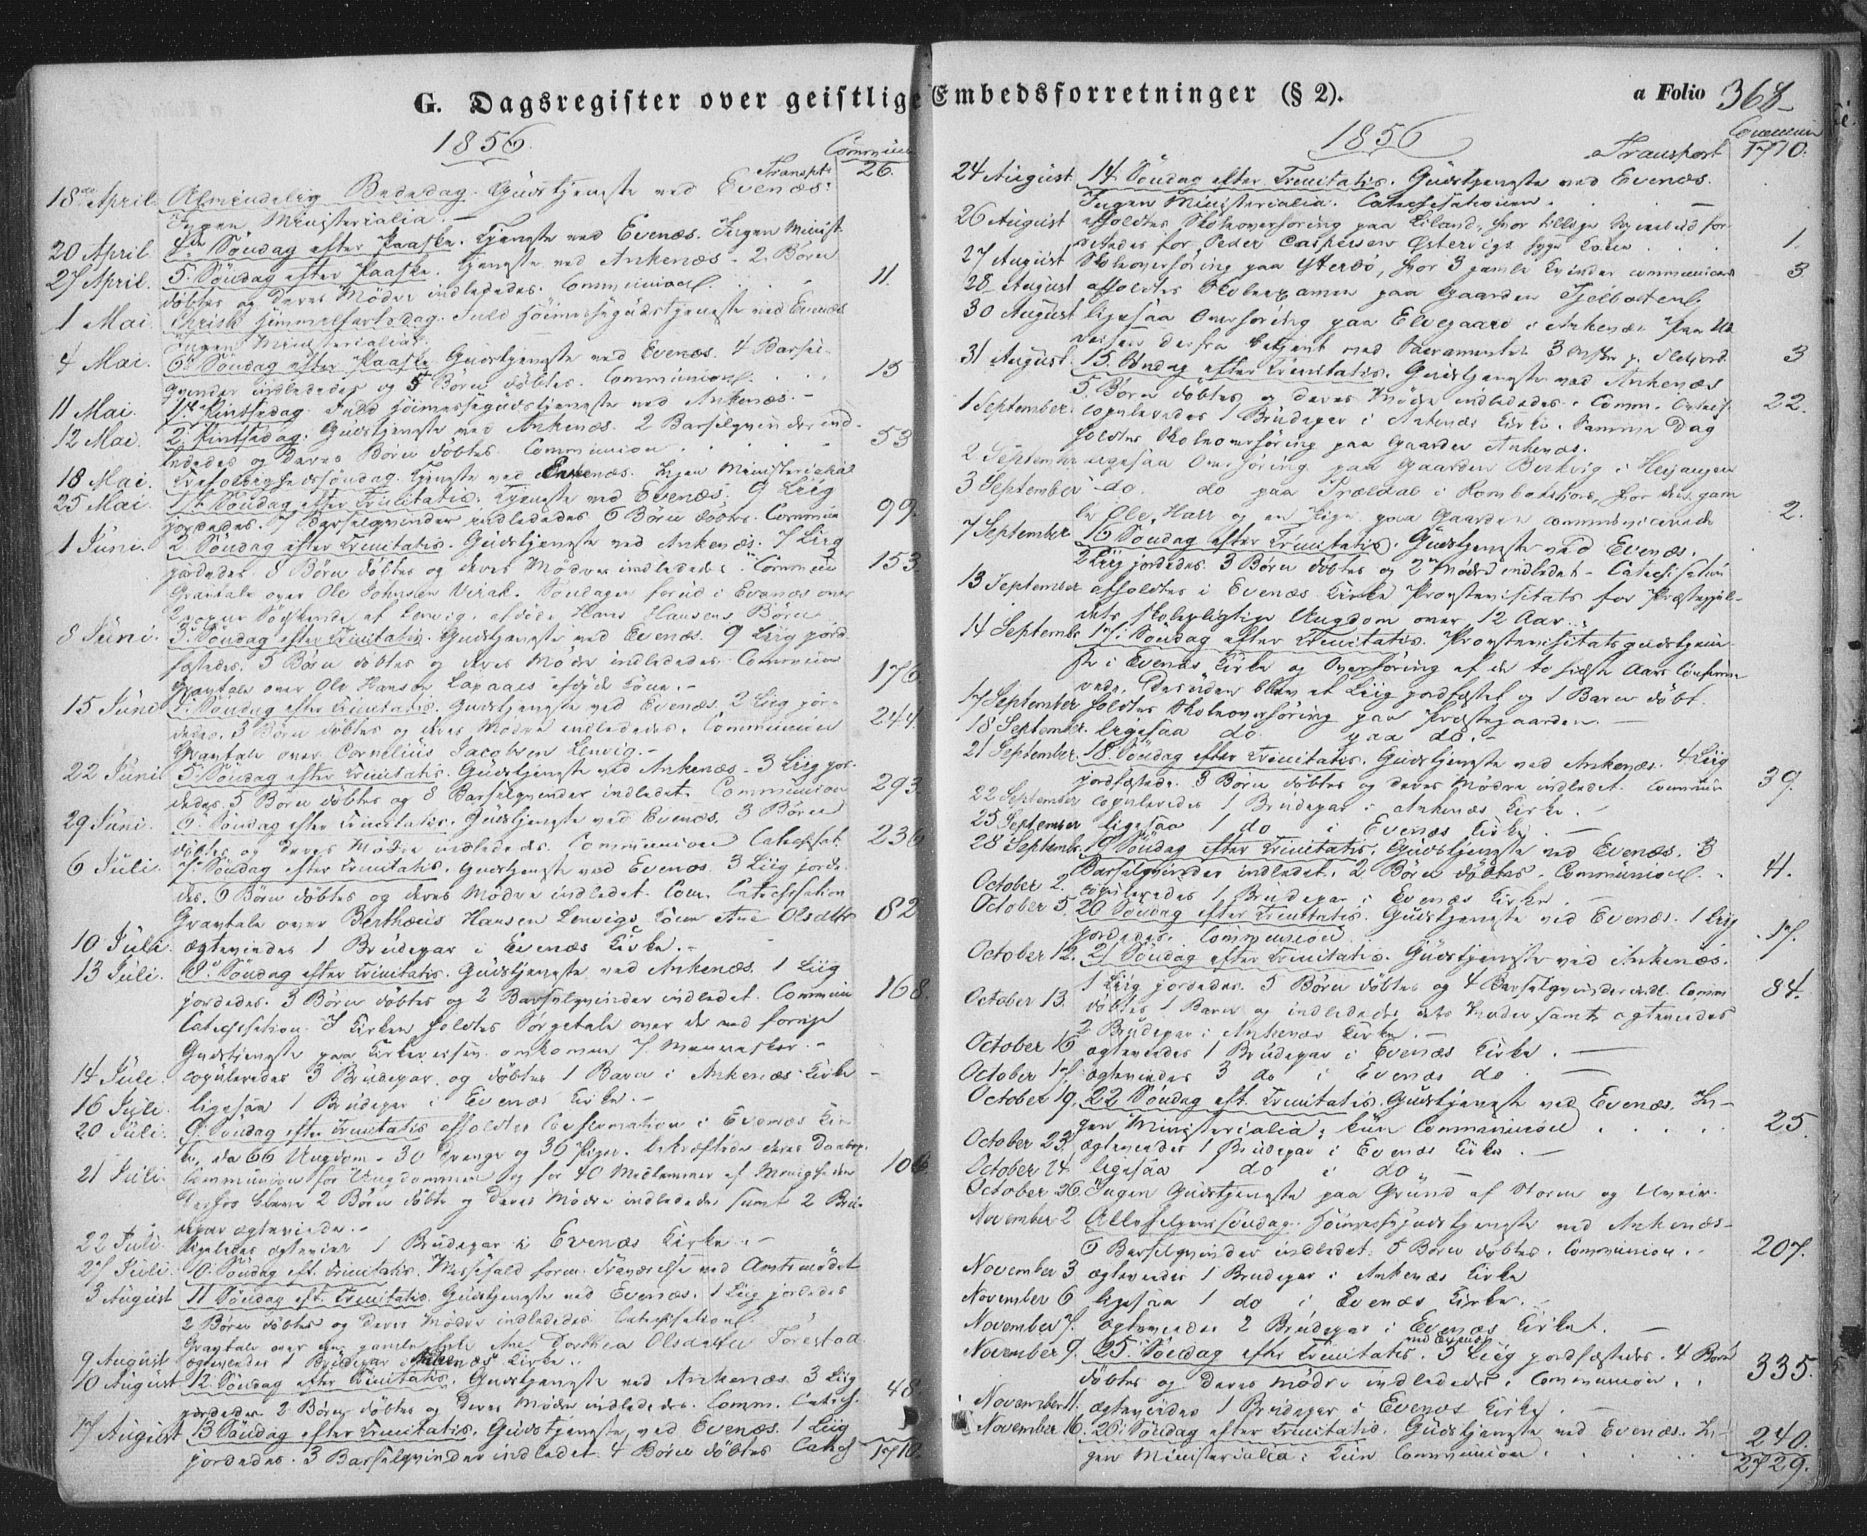 G. Dagsregister over geistlige Embedsforretninger (§ 2).
a Folio 368
1856
Commun
Transpt. 26.
18de April. Almindelig Bededag. Gudstjeneste ved Evenæs.
Ingen Ministerialia. –
20 April. 4de Søndag efter Paaske. Tjeneste ved Evenæs. Ingen Minist.
27 April. 5 Søndag efter Paaske. Tjeneste ved Ankenæs. 2 Børn
døbtes og deres Mødre indlededes. Communion. 11.
1 Mai. Christi Himmelfartsdag. Fuld Høimessegudstjeneste ved Evenæs
Ingen Ministerialia.
4 Mai. 6te Søndag efter Paaske. Gudstjeneste ved Evenæs. 4 Barsel-
qvinder indlededes og 5 Børn døbtes. Communion. 15
11 Mai. 1st Pintsedag. Fuld Høimessegudstjeneste ved Ankenæs. –
12 Mai. 2. Pintsedag. Gudstjeneste ved Ankenæs. 2 Barselqvinder ind-
lededes og deres Børn døbtes. Communion. 53
18 Mai. Trefoldighedssøndag. Tjeneste ved Evenæs. Ingen Ministerialia
25 Mai. 1st Søndag efter Trinitatis. Tjeneste ved Evenæs. 9 Liig
jordedes. 7 Barselqvinder indlededes 6 Børn døbtes. Commun 99.
1 Juni. 2. Søndag efter Trinitatis. Gudstjeneste ved Ankenæs. 7 Liig
jordedes. 8 Børn døbtes og deres Mødre indlededes. Commun 153.
Gravtale over Ole Johnsen Virak. Søndagen forud i Evenæs over
2 Søskende af Lenvig, afdøde Hans Hansens Børn
8 Juni. 3. Søndag efter Trinitatis. Gudstjeneste ved Evenæs. 9 Liig jord-
fæstedes. 5 Børn døbtes og deres Mødre indlededes. Commun 176
Gravtale over Ole Hansen Lapaaes afdøde Kone. –
15 Juni 4. Søndag efter Trinitatis. Gudstjeneste ved Evenæs. 2 Liig jor-
dedes. 3 Børn døbtes og deres Mødre indlededes. Communion 244.
Gravtale over Cornelius Jacobsen Lenvig. –
22 Juni 5. Søndag efter Trinitatis. Gudstjeneste ved Ankenæs. 3 Liig jor-
dedes. 5 Børn døbtes og 8 Barselqvinder indledet. Communion 293
29 Juni. 6. Søndag efter Trinitatis. Gudstjeneste ved Evenæs. 3 Børn
døbtes og deres Mødre indlededes. Communion Catechisat. 236
6 Juli. 7. Søndag efter Trinitatis. Gudstjeneste ved Evenæs. 3 Liig jorde-
des. 6 Børn døbtes og deres Mødre indledet. Com. Catechisation
Gravtale over Berthæus Hansen Lenvigs Kone Ane Olsdatter 82
10 Juli. ægteviedes 1 Brudepar i Evenæs Kirke. –
13 Juli. 8. Søndag efter Trinitatis. Gudstjeneste ved Ankenæs. 1 Liig
jordedes. 3 Børn døbtes og 2 Barselqvinder indledet. Commun 168.
Catechisation. I Kirken holdtes Sørgetale over de ved forrige
Gudstjeneste paa Kirkereisen omkomne 7 Mennesker. –
14 Juli. copuleredes 3 Brudepar, og døbtes 1 Barn i Ankenæs Kirke –
16 Juli. ligesaa 1 Brudepar i Evenæs Kirke. –
20 Juli. 9. Søndag efter Trinitatis afholdtes Confirmation i Evenæs Kir-
ke, da 66 Ungdom – 30 Drenge og 36 Piger, bekræftede deres Daabsp.
21 Juli. Communion for Ungdommen og for 40 Medlemmer af Menigheden 106
Desfor bleve 2 Børn døbte og deres Mødre indledede samt 2 Bru-
depar ægteviede. –
22 Juli. ligeledes ægteviet 1 Brudepar i Evenæs Kirke. –
27 Juli. 10. Søndag eft. Trinitatis. Messefald form. Fraværelse ved Amtsmødet
3 August 11 Søndag eft. Trinitatis. Gudstjeneste ved Evenæs. 1 Liig jordedes
2 Børn døbtes og deres Mødre indlededes. Catechisation.
Gravtale over den gamle Ane Dorthea Olsdatter Forestad
9 August ægteviedes 1 Brudepar i Ankenæs Kirke.
10 August 12. Søndag efter Trinitatis. Gudstjeneste ved Ankenæs. 3 Liig
jordedes 2 Børn døbtes og deres Mødre indlededes. Comm. Catech. 48.
17 August 13 Søndag efter Trinitatis. Gudstjeneste ved Evenæs. 1 Liig
jordedes. 3 Barselqvinder indledet. 4 Børn døbtes Catech 1710.
1856
Commun
Transport 1710.
24 August. 14. Søndag efter Trinitatis. Gudstjeneste ved Evenæs.
Ingen Ministerialia. Catechisation.
26 August afholdtes Skoleoverhøring paa Liland, hvor tillige Sygebud for-
rettedes for Peder Caspersen Østervigs syge Kone. 1.
27 August Skoleoverhøring paa Ytersø, hvor 3 gamle Qvinder communicered 3
28 August afholdtes Skoleexamen paa Gaarden Fjelbotten.
30 August ligesaa Overhøring paa Elvegaard i Ankenæs. Paa
reisen derfra betjent med Sacramentet 3 3
31 August. 15. Søndag efter Trinitatis. Gudstjeneste ved Ankenæs
5 Børn døbtes og deres Mødre indlededes. Comm. Catech. 22.
1 September. copuleredes 1 Brudepar i Ankenæs Kirke. Samme Dag
holdtes Skoleoverhøring paa Gaarden Ankenæs.
2 September ligesaa Overhøring paa Gaarden Berkvig i Herjangen
3 September do. do paa Trældal i Rombakken, hvor den gam
le Ole Hall og en Pige paa Gaarden communicerede 2.
7 September 16 Søndag efter Trinitatis. Gudstjeneste ved Evenæs.
2 Liig jordedes. 3 Børn døbtes og 2 Mødre indledet – Catechisation
13 September afholdtes i Evenæs Kirke Provstevisitats for Præstegjel-
dets skolepligtige Ungdom over 12 Aar.
14 Septembr. 17. Søndag efter Trinitatis. Provstevisitatsgudstjene
ste i Evenæs Kirke og Overhøring af de to sidste Aars Confirme
rede. Desuden blev et Liig jordfæstet og 1 Barn døbt.
17 September holdtes Skoleoverhøring paa Præstegaarden. –
18 September. ligesaa do paa do. –
21 September. 18. Søndag efter Trinitatis. Gudstjeneste ved Ankenæs. 4 Liig
jordfæstede. 3 Børn døbtes og deres Mødre indledet. Commun 39.
22 September copuleredes 1 Brudepar i Ankenæs Kirke.
25 September ligesaa 1 do i Evenæs Kirke. –
28 Septembr. 19 Søndag efter Trinitatis. Gudstjeneste ved Evenæs. 3
Barselqvinder indledet. 2 Børn døbtes. Communion. 41.
October 2. copuleredes 1 Brudepar i Evenæs Kirke. –
October 5. 20 Søndag efter Trinitatis. Gudstjeneste ved Evenæs. 1 Liig
jordedes. Communion. 17.
October 12. 21 Søndag efter Trinitatis. Gudstjeneste ved Ankenæs.
1 Liig jordedes. 5 Børn døbtes og 4 Barselqvinder indl. Comm 84.
October 13. døbtes 1 Barn og indlededes dets Moder samt ægteviedes
2 Brudepar i Ankenæs Kirke. –
October 16 ægteviedes 1 Brudepar i Evenæs Kirke. –
October 17. ægteviedes 3 do i Evenæs do. –
October 19. 22 Søndag eft. Trinitatis. Gudstjeneste ved Evenæs. In-
gen Ministerialia; kun Communion 25.
October 23. ægteviedes 1 Brudepar i Evenæs Kirke. –
October 24. ligesaa 1 do i do. –
October 26. Ingen Gudstjeneste paa Grund af Storm og Uveir.
November 2 Allehelgenssøndag. Høimessegudstjeneste ved Ankenæs –
6 Barselqvinder indledet. 5 Børn døbtes. Communion. 207.
November 3 ægteviedes 1 Brudepar i Ankenæs Kirke
November 6 ligesaa 1 do i Evenæs Kirke. –
November 7. ægteviedes 2 Brudepar i Evenæs Kirke. –
ved Evenæs
November 9. 25. Søndag efter Trinitatis. 3 Liig jordfæstedes. 4 Børn
døbtes og deres Mødre indlededes. Communion. 335.
November 11. ægteviedes 1 Brudepar i Evenæs Kirke. –
November 16. 26. Søndag efter Trinitatis. Gudstjeneste ved Evenæs. In-
gen Ministerialia: kun Communion 240.
2729.